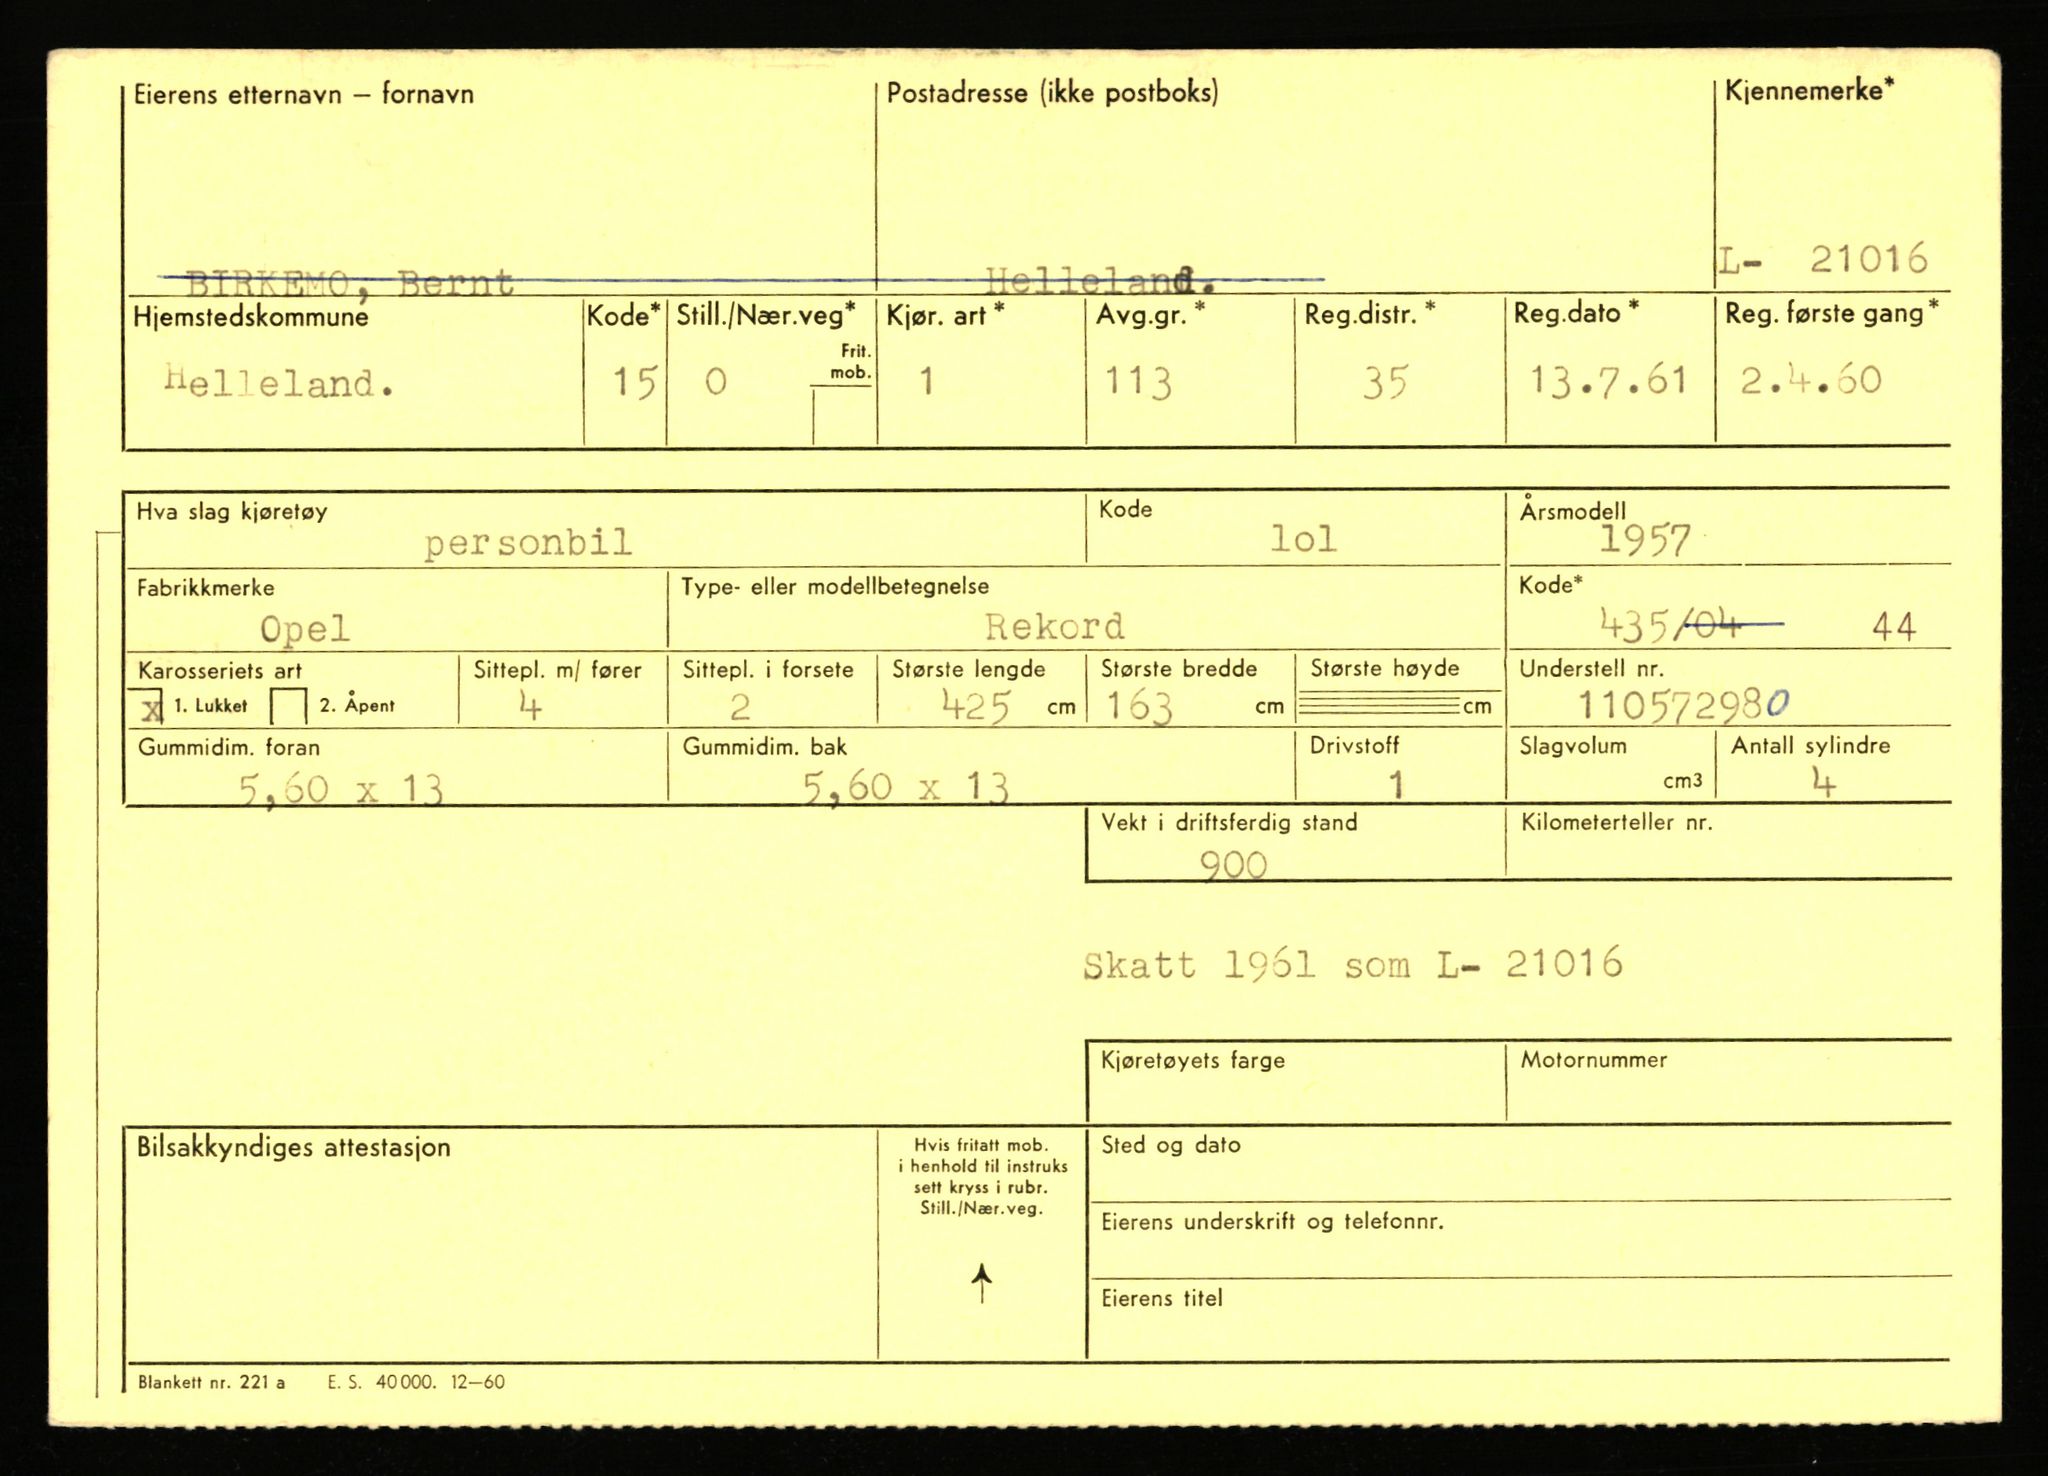 Eierens etternavn – fornavn Postadresse (ikke postboks) Kjennemerke*
BIRKEMO, Bernt Helleland. L- 21016
Hjemstedskommune Kode* Still./Nær.veg* Kjør. art* Avg.gr.* Reg.distr.* Reg.dato* Reg. første gang*
Frit.
mob.
Helleland. 15 0 1 113 35 13.7.61 2.4.60
Hva slag kjøretøy Kode Årsmodell
personbil lol 1957
Fabrikkmerke Type- eller modellbetegnelse Kode*
Opel Rekord 435/04 44
Karosseriets art Sittepl. m/ fører Sittepl. i forsete Største lengde Største bredde Største høyde Understell nr.
x 1. Lukket 2. Åpent 4 2 425 cm 163 cm cm 110572980
Gummidim. foran Gummidim. bak Drivstoff Slagvolum Antall sylindre
5,60 x 13 5,60 x 13 1 cm3 4
Vekt i driftsferdig stand Kilometerteller nr.
900
Skatt 1961 som L- 21016
Kjøretøyets farge Motornummer
Bilsakkyndiges attestasjon Hvis fritatt mob. Sted og dato
i henhold til instruks
sett kryss i rubr.
Still./Nær.veg.
Eierens underskrift og telefonnr.
Eierens titel
Blankett nr. 221 a E. S. 40 000. 12–60